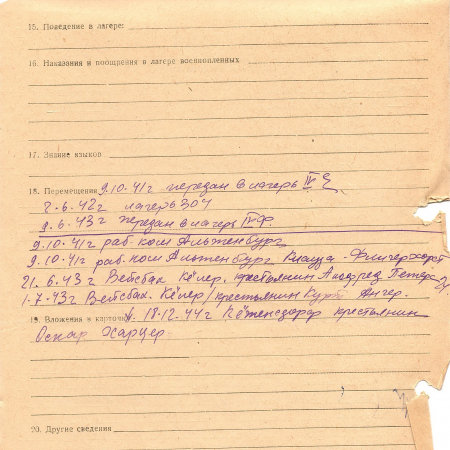 15. Поведение в лагере:
16. Наказания и поощрения в лагере военнопленных
17. Знание языков
18. Перемещения 9.10.41г передан в лагерь IV E
2.6.42г лагерь 304
9.6.43г передан в лагерь IV Ф.
9.10.41г раб. ком Альтенбург
9.10.41г раб. ком Альтенбург
21.6.43г Вейсбах Кёлер, крестьянин
1.7.43г Вейсбах. Кёлер/крестьянин Курт Ангер.
19. Вложения в карточку 18.12.44г крестьянин
Оскар Харцер.
20. Другие сведения